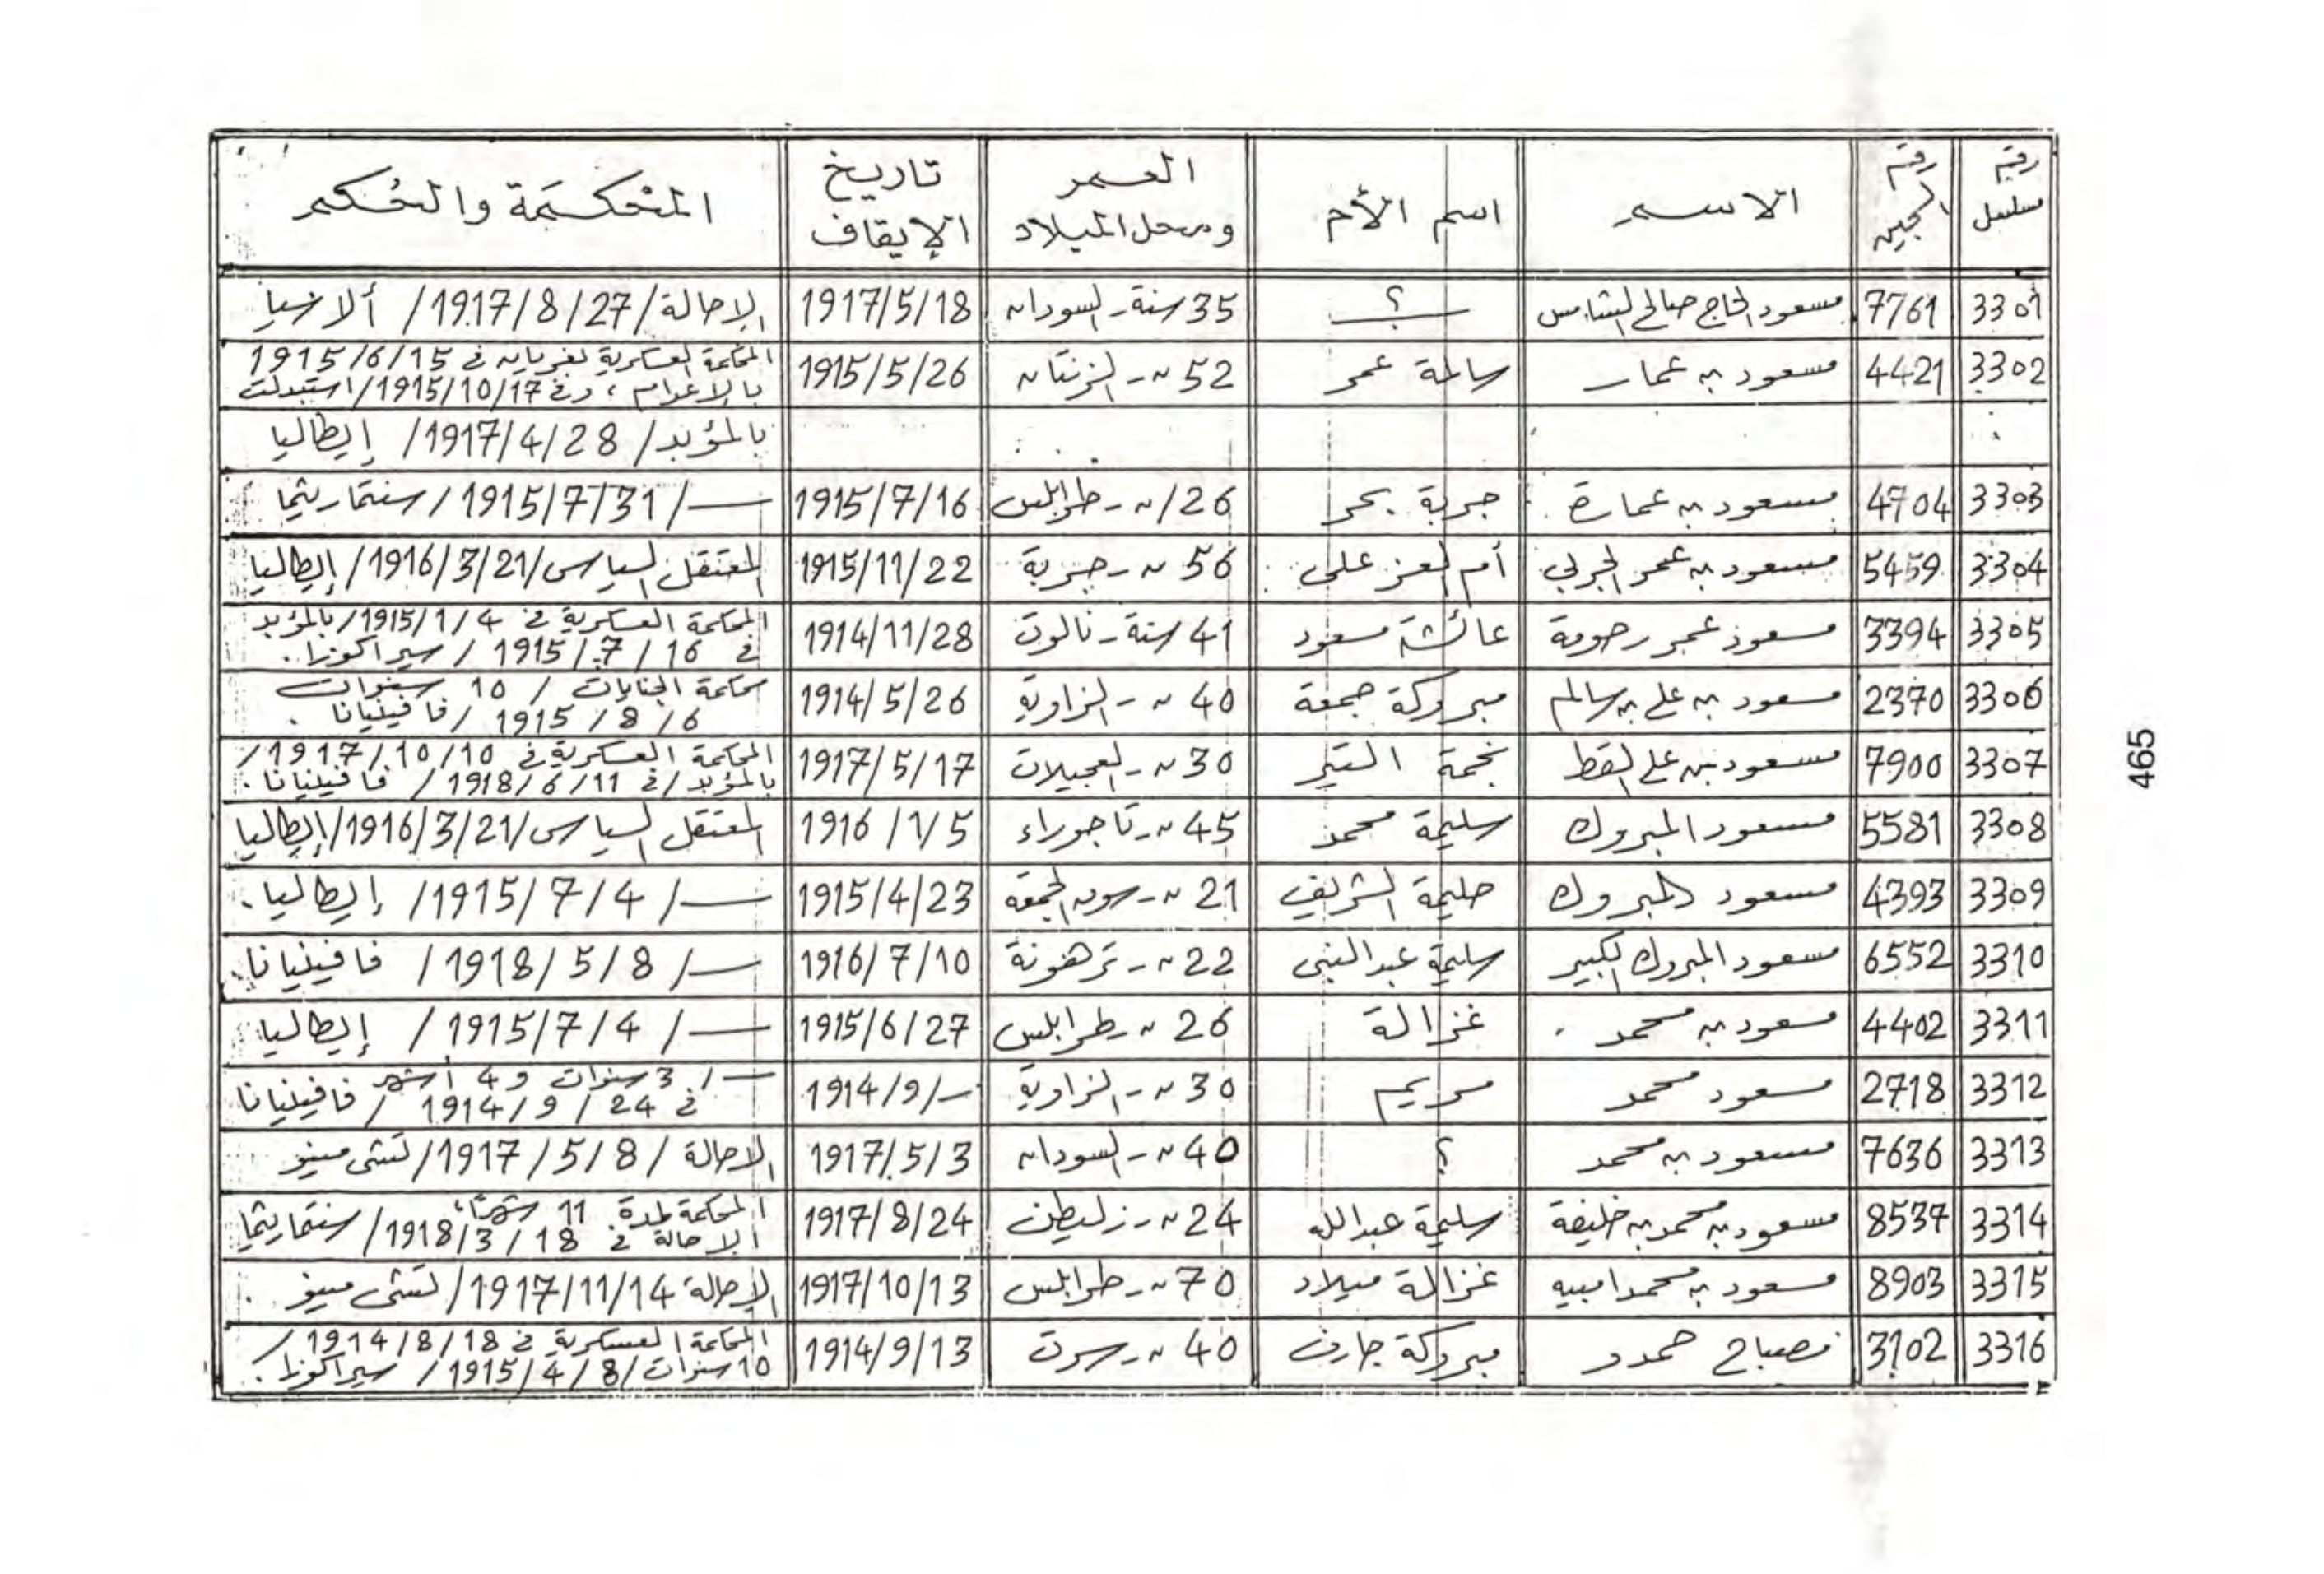 رقم مسلسل | رقم السجين | الاسم | اسم الأم | العمر ومحل الميلاد | تاريخ الإيقاف | المحكمة والحكم
3301 | 7761 | مسعود الحاج صالح الشامس | ؟ | 35 سنة - السودان | 1917/5/18 | الإحالة / 1917/8/27 / ألانيا
3302 | 4421 | مسعود بن عمار | سالمة عمر | 52 " - الزنتان | 1915/5/26 | المحكمة العسكرية بغريان في 1915/6/15
بالإعدام ، وفي 1915/10/17 / استبدلت
بالمؤبد / 1917/4/28 / إيطاليا
3303 | 4704 | مسعود بن عمارة | جربة بحر | 26 / " - طرابلس | 1915/7/16 | — / 1915/7/31 / سنتماريتما
3304 | 5459 | مسعود بن عمر الجربي | أم العز على | 56 " - جربة | 1915/11/22 | المعتقل السياسى / 1916/3/21 / إيطاليا
3305 | 3394 | مسعود عمر رحومة | عائشة مسعود | 41 سنة - نالوت | 1914/11/28 | المحكمة العسكرية في 1915/1/4 / بالمؤبد
في 1915/7/16 / سيراكوزا .
3306 | 2370 | مسعود بن على بن سالم | مبروكة جمعة | 40 " - الزاوية | 1914/5/26 | محكمة الجنايات / 10 سنوات
1915/8/6 / فافينيانا .
3307 | 7900 | مسعود بن على القط | نجمة التير | 30 " - العجيلات | 1917/5/17 | المحكمة العسكرية في 1917/10/10 /
بالمؤبد / في 1918/6/11 / فافينيانا .
3308 | 5581 | مسعود المبروك | سليمة محمد | 45 " - تاجوراء | 1916/1/5 | المعتقل السياسى / 1916/3/21 / إيطاليا
3309 | 4393 | مسعود المبروك | حليمة الشريف | 21 " - سوق الجمعة | 1915/4/23 | — / 1915/7/4 / إيطاليا .
3310 | 6552 | مسعود المبروك الكبير | سليمة عبدالنبى | 22 " - ترهونة | 1916/7/10 | — / 1918/5/8 / فافينيانا .
3311 | 4402 | مسعود بن محمد . | غزالة | 26 " - طرابلس | 1915/6/27 | — / 1915/7/4 / إيطاليا
3312 | 2718 | مسعود محمد | مريم | 30 " - الزاوية | 1914/9/- | — / 3 سنوات و 4 أشهر
في 1914/9/24 / فافينيانا
3313 | 7636 | مسعود بن محمد | ؟ | 40 " - السودان | 1917/5/3 | الإحالة / 1917/5/8 / تشى مينو
3314 | 8537 | مسعود بن محمد بن خليفة | سليمة عبدالله | 24 " - زليطن | 1917/8/24 | المحكمة لمدة 11 شهرًا ،
الإحالة في 1918/3/18 / سنتماريتما
3315 | 8903 | مسعود بن محمد امبيه | غزالة ميلاد | 70 " - طرابلس | 1917/10/13 | الإحالة 1917/11/14 / تشى مينو .
3316 | 3102 | مصباح حمدو | مبروكة جارف | 40 " - سرت | 1914/9/13 | المحكمة العسكرية في 1914/8/18 /
10 سنوات / 1915/4/8 / سيراكوزا .
465